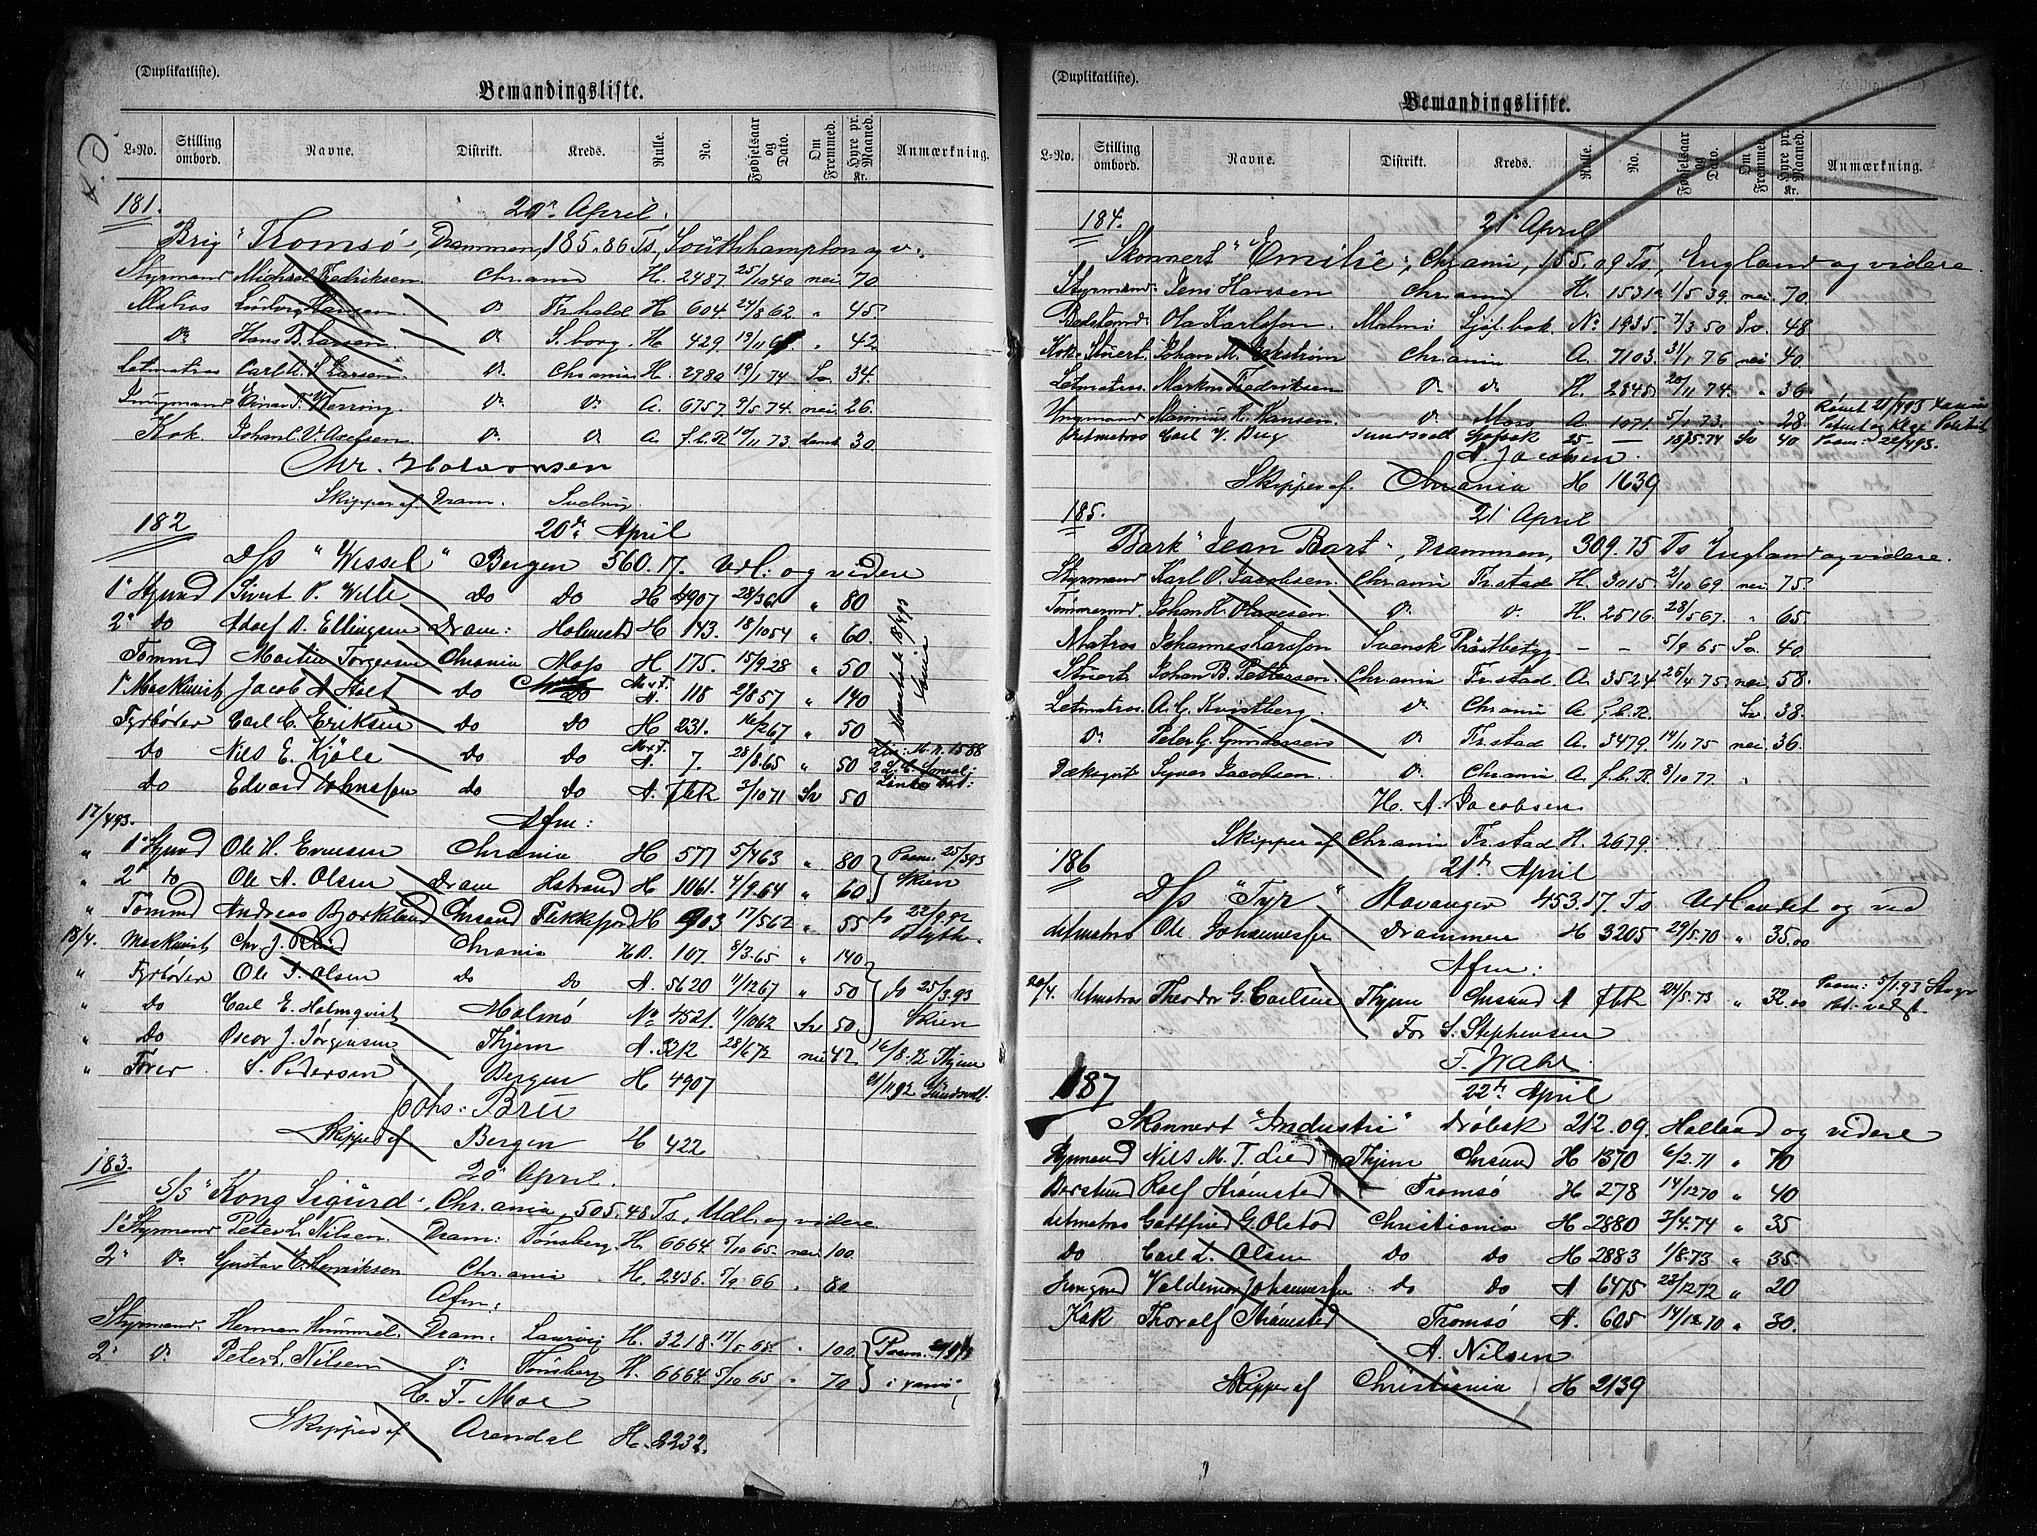 (Duplikatliste).
Bemandingsliste.
L-No. Stilling ombord. Navne. Distrikt. Kreds. Rulle. No. Fødselsaar og Dato. Om Fremmed. Hyre pr. Maaned. Kr. Anmærkning.
181. 20de April.
Brig "Tromsö", Drammen, 185.86 Ts, Southhampton og v.
Styrmand Michael Fredriksen Chr.ania H. 2487 25/10 40 nei 70
Matros Ludvig Hansen Do Fr.hald H 604 24/8 62 " 45
Do Hans B. Larsen Do S.borg H 429 " 42
Letmatros Carl A. S. Larsen Do Chr.ania H. 2980 19/1 74 Sv. 34
Jungmand Einar F. Werring Do Do A. 6757 9/5 74 nei 26
Kok Johan C. V. Axelsen Do Do A f.b.R. 10/11 73 dansk 30
Chr. Halvorsen
Skipper af Dram. Svelvig
182 20de April
D/S "Wessel" Bergen 560.17. Udl: og videre
1' Stymd Sivert P. Wille Do Do H 4907 28/3 61 " 80
2' do Adolf A. Ellingsen Dram: Holmestd H 143. 18/10 54 " 60.
Tømmd Martin Torgersen Chrania Moss H 175. 15/9 28 " 50
1' Maskinist Jacob A Holt do do M&F. A. 118 2/8 57 " 140
Fyrbøder Carl C. Eriksen do do H 231. 16/2 67 " 50
do Nils E. Kjöle do do M&F. A 7. 28/8.65 " 50
do Edvard Johnsson do do A. fbR 3/10 71 Sv 50
17/4 93. Afm:
" 1' Stymd Ole H. Evensen Chrania H 577 5/4 63 " 80 Paam: 25/3 93
" 2' do Ole A. Olsen Dram Hstrand H 1061. 4/9.64 " 60 Skien
" Tømmd Andreas Bjorklund Chrsand Flekkefjord H 903 17/5 62 " 55 do 22/9.92 Blyth
18/4. Maskinist Chr. J. Chrania H A. 107. 8/3.65 " 140
" Fyrbøder Ole S. Olsen do do A. 5620 11/12 67 " 50 do 25/3.93
" do Carl E. Holmqvist Malmö No 4521. 11/10 62 Sv 50 Skien
" do Oscar J. Jørgensen Thjem A. 3212 28/6 72 nei 42 16/8.92 Thjem
" Fører S. Pedersen Bergen H 4907 21/11 92 Sundsvall.
Johs: Bru
Skipper af Bergen H 422
183. 20de April.
S/S "Kong Sigurd", Chr.ania, 505.48 Ts, Udl. og videre
1' Styrmand Peter L. Nilsen. Dram: Tønsberg. H. 6664. 5/10 65. nei 100.
2' Do Gustav E. Henriksen Chr.ania H. 2436. 5/9.66 " 80
Afm:
Styrmand. Herman Hummel. Dram: Laurvig H. 3218. 17/5.68. " 100. Paam.
2' Do Peter L. Nilsen Do Tønsberg H. 6664. 5/10 65 " 70
C. F. Moe
Skipper af Arendal H. 2232.
(Duplikatliste).
Bemandingsliste.
L-No. Stilling ombord. Navne. Distrikt. Kreds. Rulle. No. Fødselsaar og Dato. Om Fremmed. Hyre pr. Maaned. Kr. Anmærkning.
184. 21' April
Skonnert "Emilie", Chr.ania, 155.09 Ts, England og videre.
Styrmand. Jens Hansen Chr.ania H. 1531a 1/5 39. nei 70.
Bedstmd Ola Karlsson. Malmö Sjöf.bok No. 1935. 7/3 50 Sv. 48
Kok & Stuert. Johan M. Eckström Chr.ania A. 7103. 31/1 76 nei 40
Letmatros. Markus Fredriksen Do Do H. 2845 20/11 74. " 36
Ungmand Marinius H. Hansen. Do Moss A. 1071. 5/1 73. " 28
Letmatros Carl V. Berg Sundsvall Sjöfbok 25 — 18/5.74 Sv 40 Paam: 22/4 93.
A. Jacobsen.
Skipper af. Chrania H 1639
185. 21' April
Bark "Jean Bart", Drammen, 309.75 Ts England og videre.
Styrmand Karl O. Jacobsen. Chr.ania Fr.stad H. 3015. 2/10 69 nei 75.
Tömmermd Johan H. Olavesen Do Do H. 2516. 28/5 67. " 65.
Matros Johannes Larsson Svensk Prästbetyg - - 5/9 65 Sv. 40
Stuert Johan B. Pettersen. Chr.ania Fr.stad A. 3524 26/4 75. nei 58.
Letmatros. A. G. Kvistberg. Do Chr.ania A f.b.R. Sv. 38.
Do Peter G. Gundersen Do Fr.stad A. 3479. 14/11 75 nei 36.
Dæksgut Syver Jacobsen Do Chr.ania A. f.b.R. 8/10 77. "
H. A. Jacobsen
Skipper af Chr.ania Fr.stad H. 2679.
186 21de April
D/S "Tyr" Stavanger 453.17. Ts Udlandet og vid
Letmatros Ole Johannessen Drammen H 3205 29/5.70 " 35.00
Afm:
20/4. Letmatros Theodor G. Carlsen Thjem Chrsund A fbR 24/5.73 " 32.00
For S. Stephensen
187 22de April
Skonnert "Industri" Dröbak 212.09. Holland og videre
Stymand Nils M. T. Lied Thjem Chrsund H 1370 6/2.71 " 70
Bedstmd Rolf Strømsted Tromsö H 278 14/12 70 " 40
Letmatros Gottfried G. Olstad Christiania H 2880 3/4.74 " 35
do Carl L. Olsen do do H 2883 1/8.73 " 35.
Jungmd Valdemar Johannessen do do A 6475 23/12 72 " 20
Kok Thoralf Strømsted Tromsö A. 605 14/12 70 " 30.
A. Nilsen
Skipper af Christiania H 2139